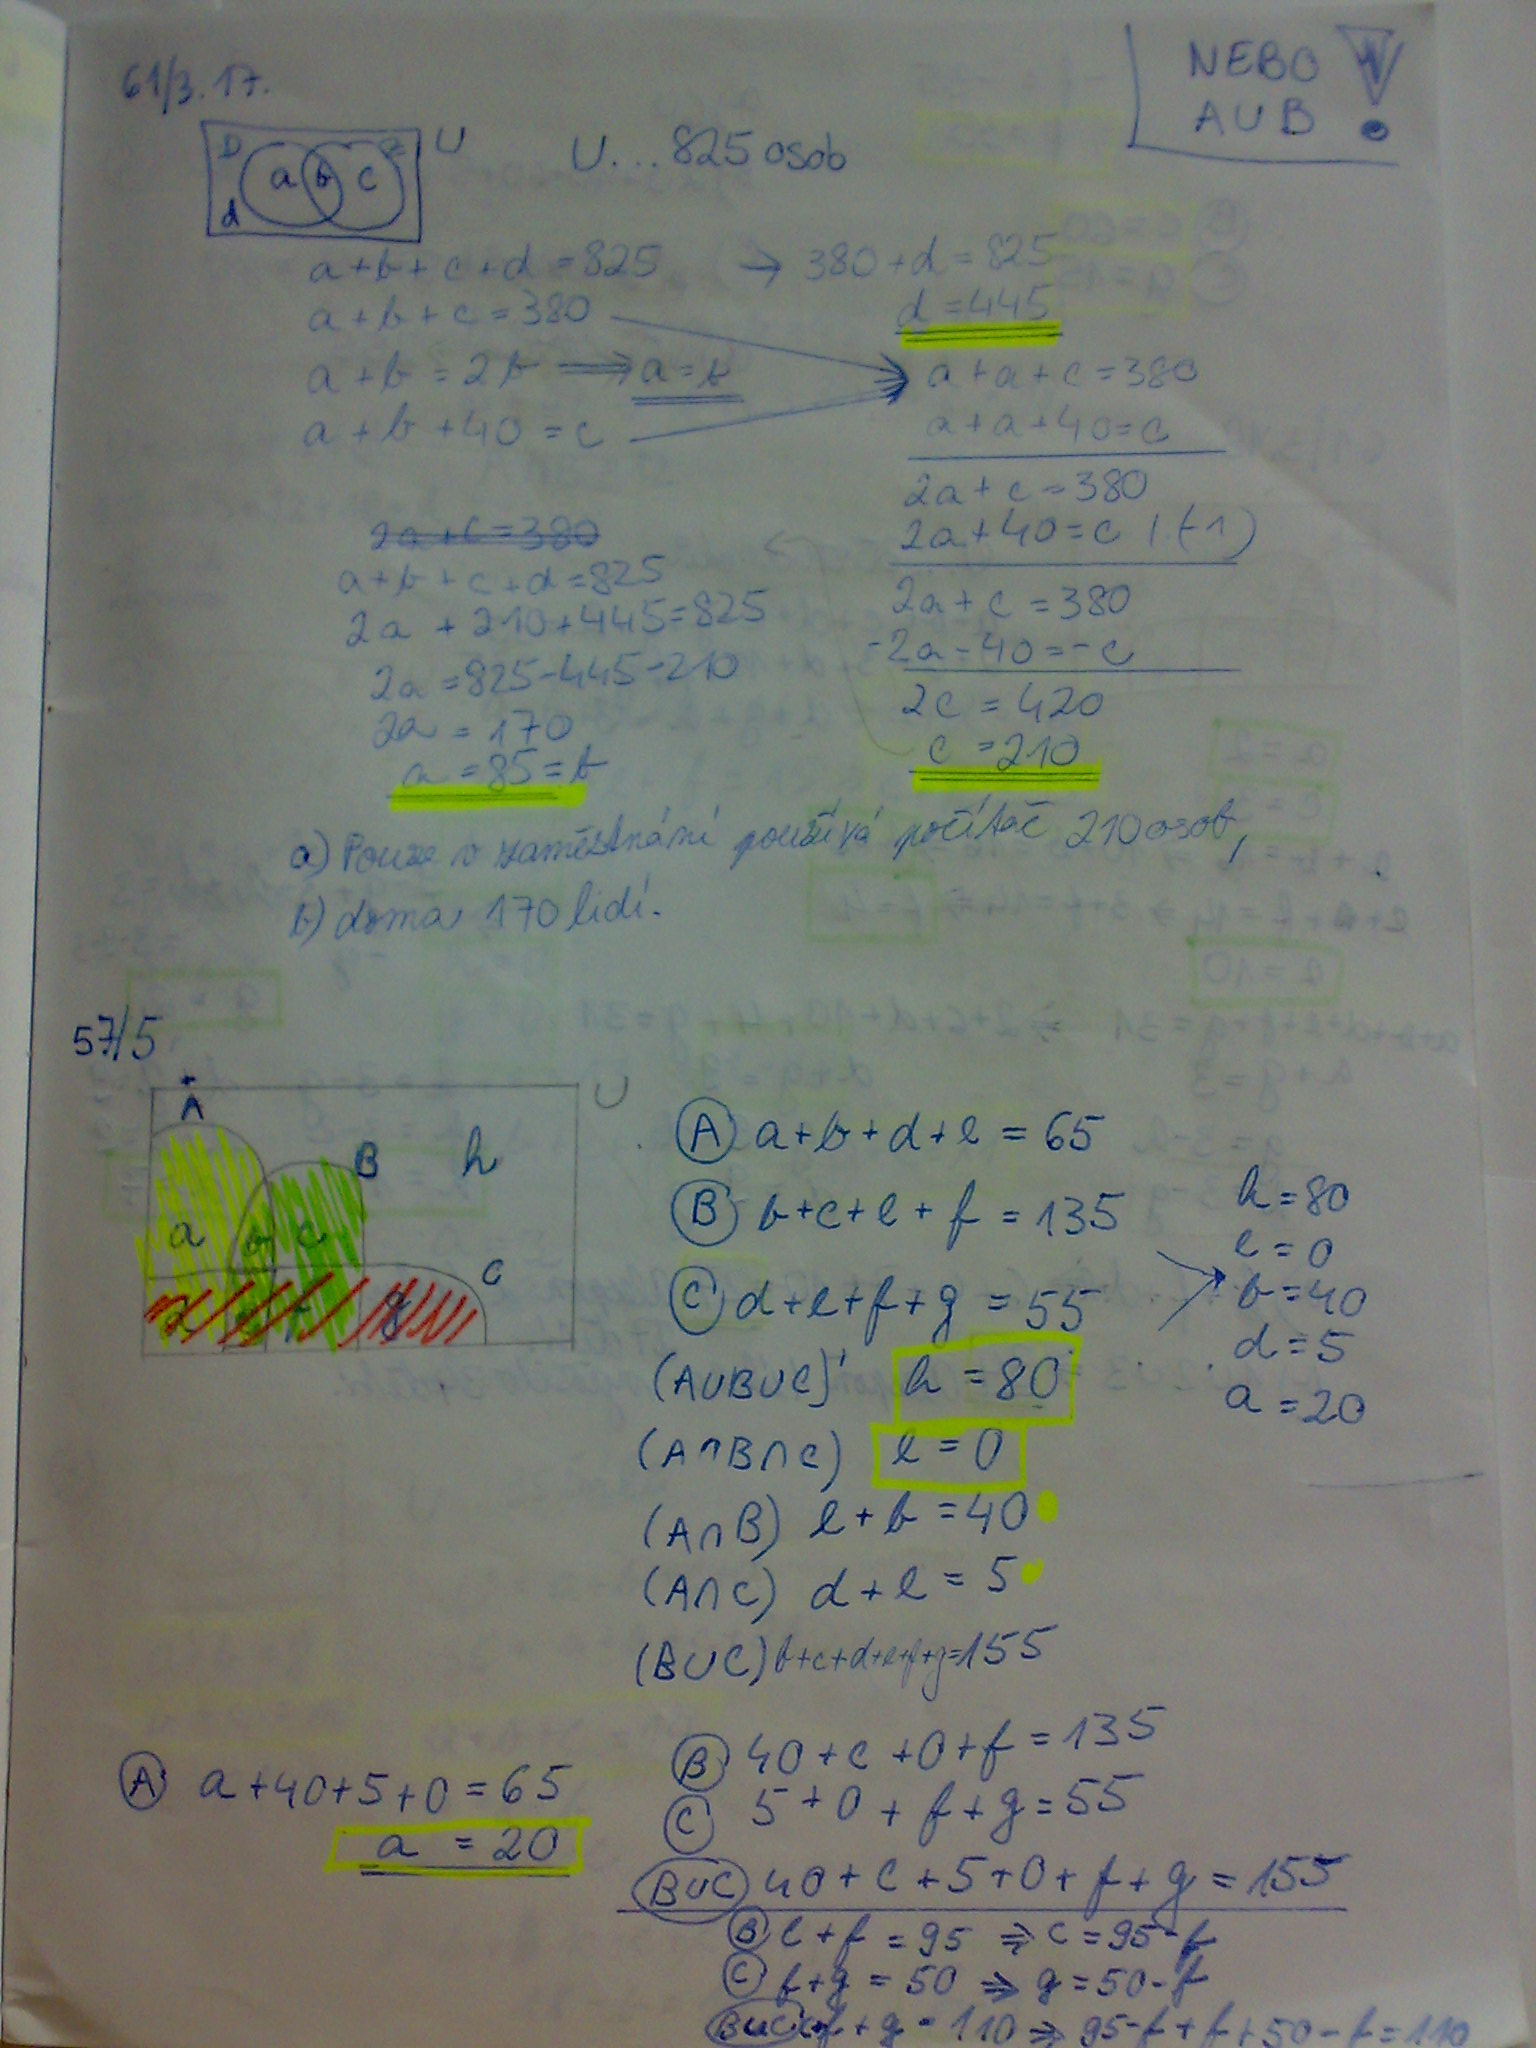 61/3.17.
NEBO
AUB !
D a b c Z d U
U...825 osob
a+b+c+d=825 → 380+d=825
a+b+c=380 d=445
a+b=2b ⟹ a=b
a+b+40=c
a+a+c=380
a+a+40=c
2a+c=380
2a+40=c /·(-1)
2a+c=380
-2a-40=-c
2c=420
c=210
2a+c=380
a+b+c+d=825
2a+210+445=825
2a=825-445-210
2a=170
a=85=b
a) Pouze v zaměstnání používá počítač 210 osob,
b) doma 170 lidí.
57/5
A B C U
a b c h
d e f g
(A) a+b+d+e=65
(B) b+c+e+f=135
(C) d+e+f+g=55
(A∪B∪C)' h=80
(A∩B∩C) e=0
(A∩B) e+b=40
(A∩C) d+e=5
(B∪C) b+c+d+e+f+g=155
h=80
e=0
b=40
d=5
a=20
(A) a+40+5+0=65
a=20
(B) 40+c+0+f=135
(C) 5+0+f+g=55
(B∪C) 40+c+5+0+f+g=155
(B) c+f=95 ⇒ c=95-f
(C) f+g=50 ⇒ g=50-f
(B∪C) c+f+g=110 ⇒ 95-f+f+50-f=110